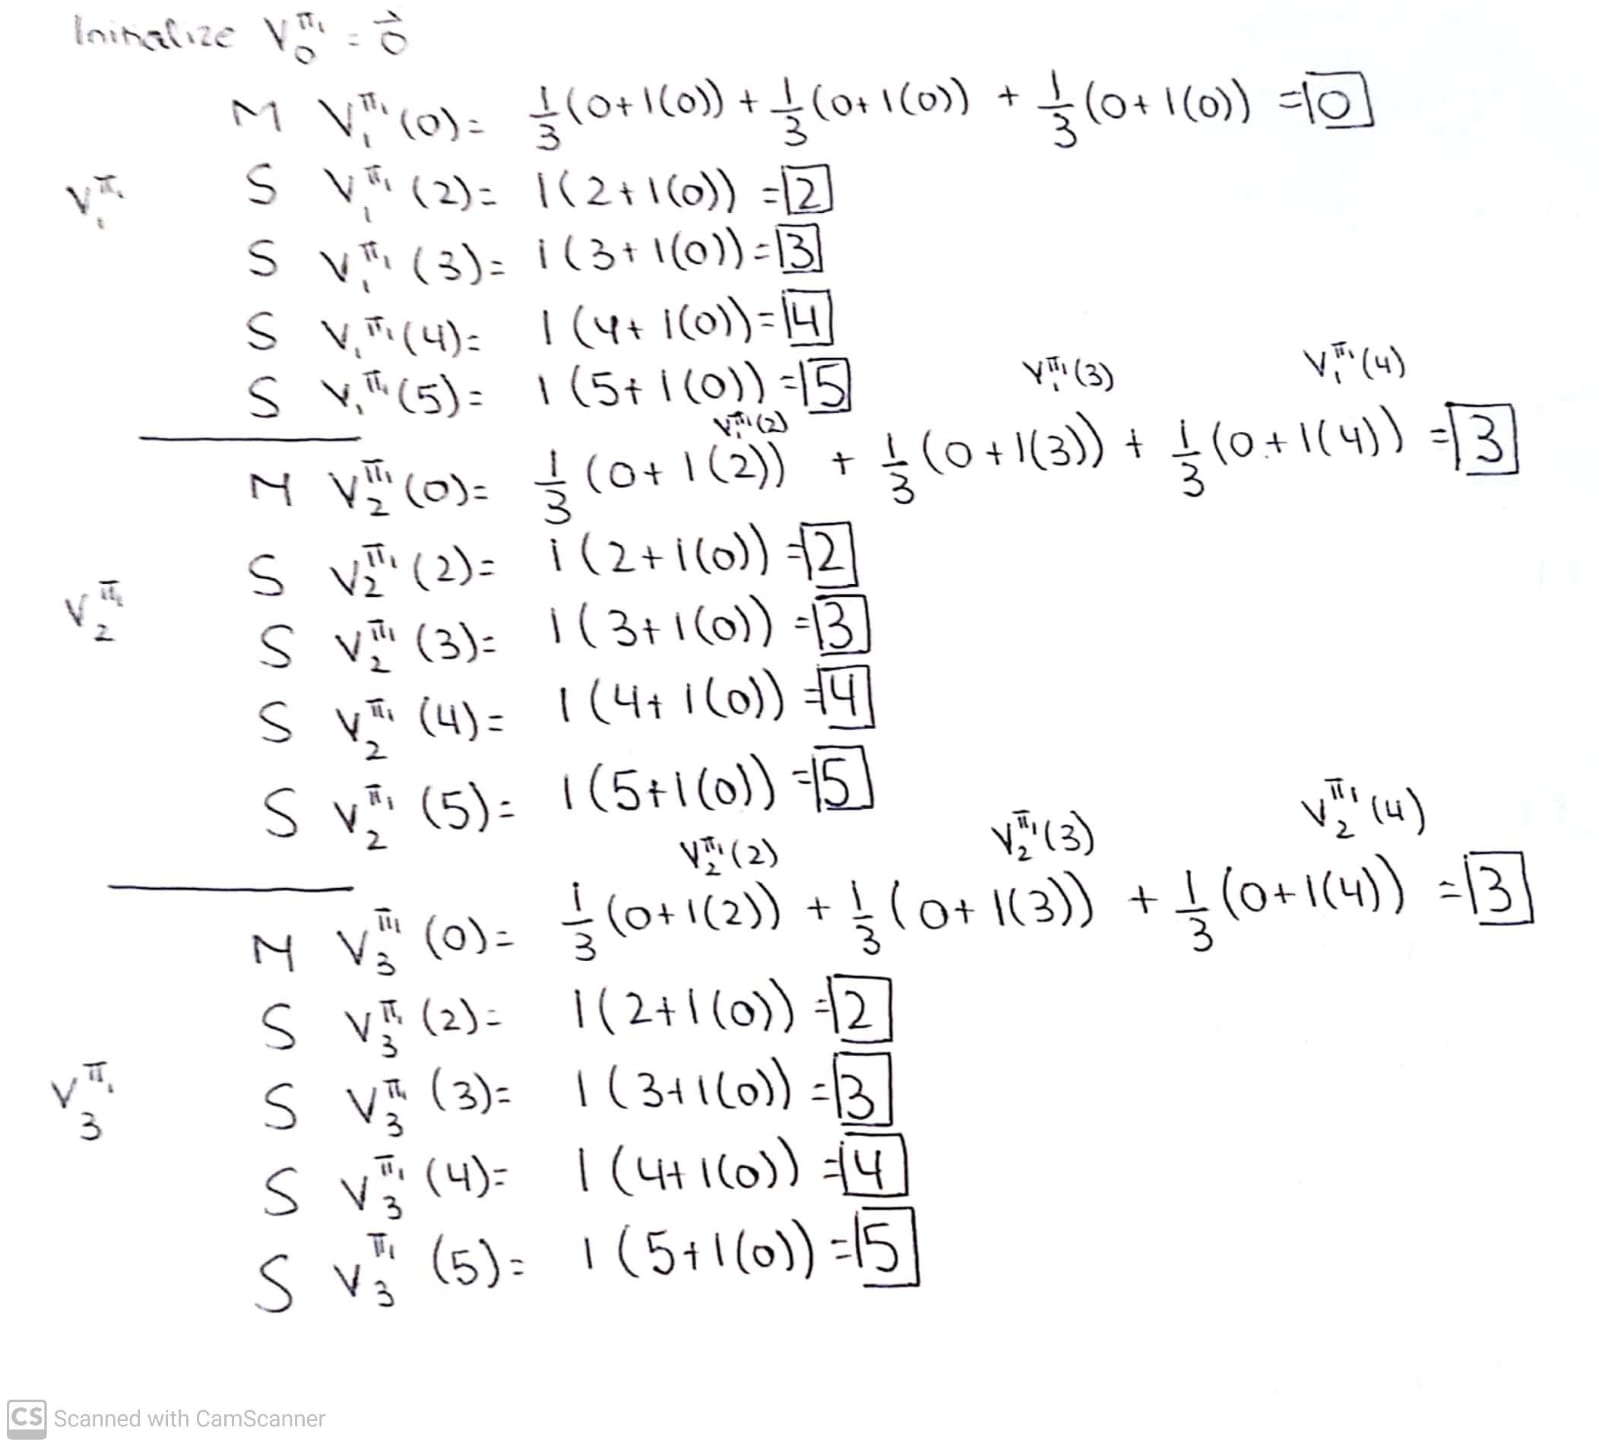 Ininalize V₀^π₁ = 0⃗
M V₁^π₁(0) = 1/3(0+1(0)) + 1/3(0+1(0)) + 1/3(0+1(0)) = 0
V₁^π₁ S V₁^π₁(2) = 1(2+1(0)) = 2
S V₁^π₁(3) = 1(3+1(0)) = 3
S V₁^π₁(4) = 1(4+1(0)) = 4
S V₁^π₁(5) = 1(5+1(0)) = 5
V₁^π₁(2) V₁^π₁(3) V₁^π₁(4)
M V₂^π₁(0) = 1/3(0+1(2)) + 1/3(0+1(3)) + 1/3(0+1(4)) = 3
S V₂^π₁(2) = 1(2+1(0)) = 2
V₂^π₁ S V₂^π₁(3) = 1(3+1(0)) = 3
S V₂^π₁(4) = 1(4+1(0)) = 4
S V₂^π₁(5) = 1(5+1(0)) = 5
V₂^π₁(2) V₂^π₁(3) V₂^π₁(4)
M V₃^π₁(0) = 1/3(0+1(2)) + 1/3(0+1(3)) + 1/3(0+1(4)) = 3
S V₃^π₁(2) = 1(2+1(0)) = 2
V₃^π₁ S V₃^π₁(3) = 1(3+1(0)) = 3
S V₃^π₁(4) = 1(4+1(0)) = 4
S V₃^π₁(5) = 1(5+1(0)) = 5
CS Scanned with CamScanner